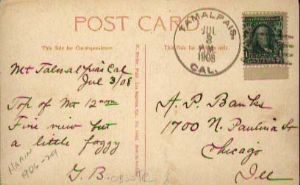 POST CARD
This Side for Correspondence.
This Side is for the Address.
TAMALPAIS,
JUL
3
1908
CAL.
Mt Tal Cal
Jul 3/08
Top of Mt 12
Fine view but
a little foggy
J. B.
A. P. Banks
1700 N. Paulina St
Chicago
Ill
MARIN